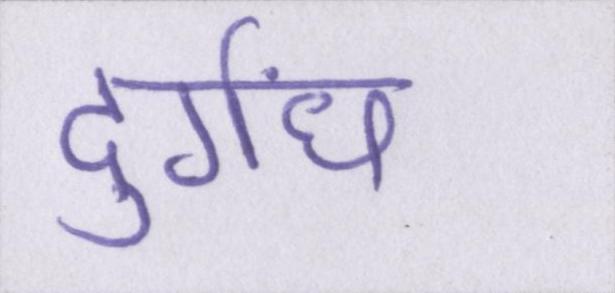 दुर्गंध